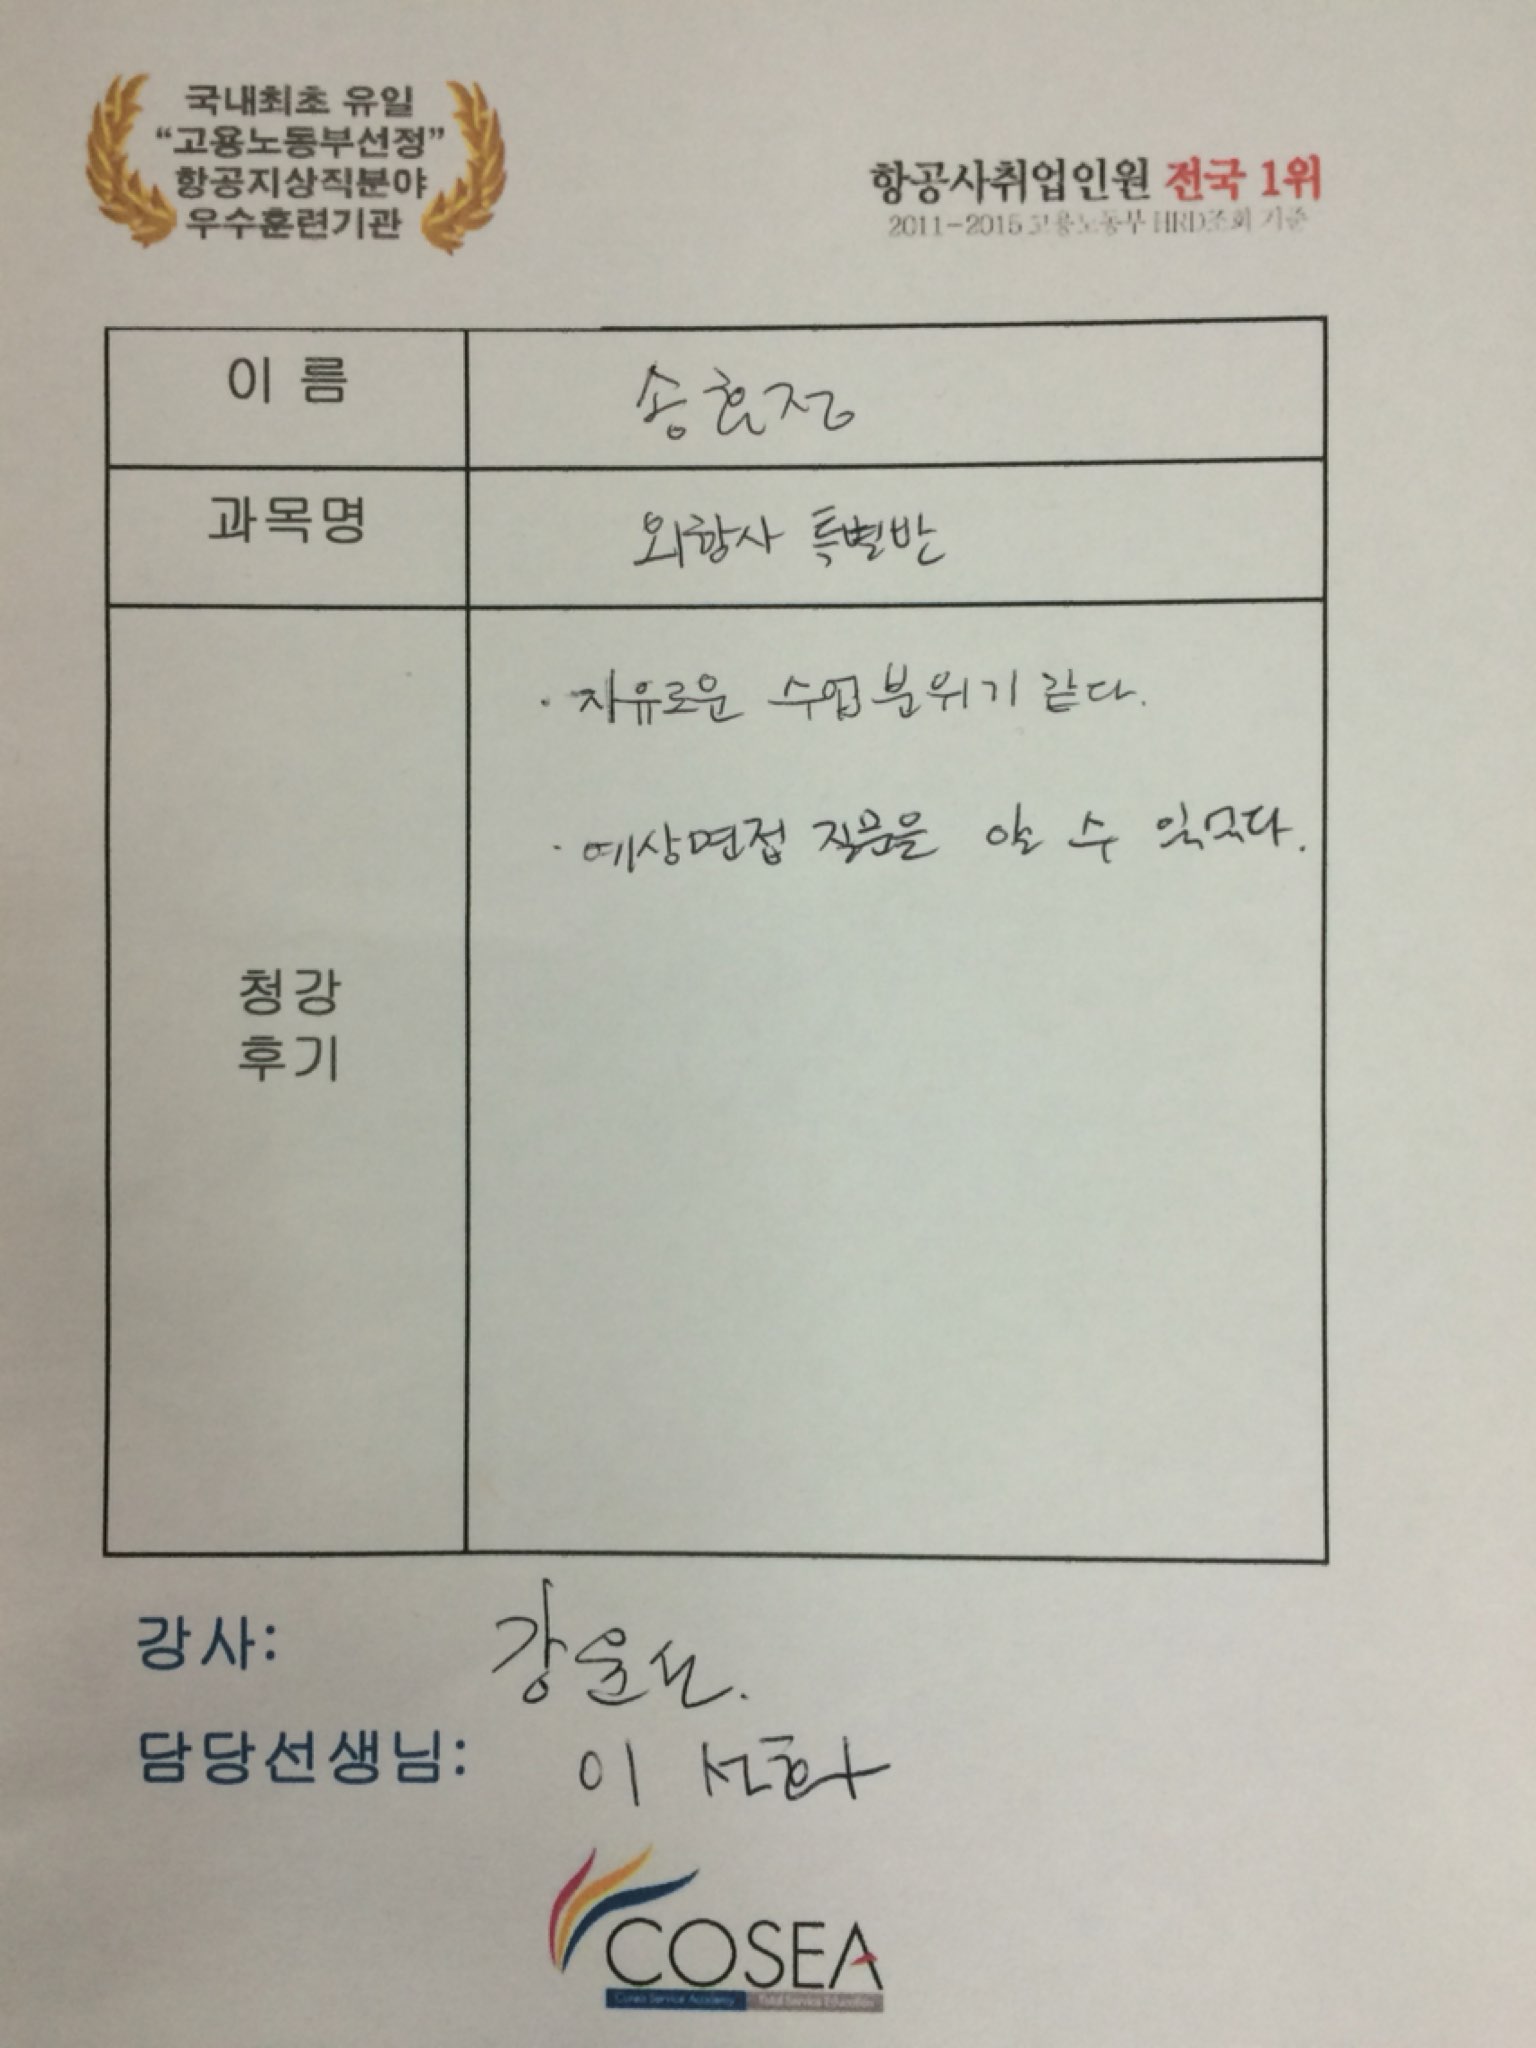 국내최초 유일
“고용노동부선정”
항공지상직분야
우수훈련기관
항공사취업인원 전국 1위
2011-2015 고용노동부 HRD조회 기준
이 름
송효정
과목명
외항사 특별반
· 자유로운 수업분위기 같다.
· 예상면접 질문을 알 수 있었다.
청강
후기
강사:
강윤선.
담당선생님:
이 선화
COSEA
Corea Service Academy Total Service Education